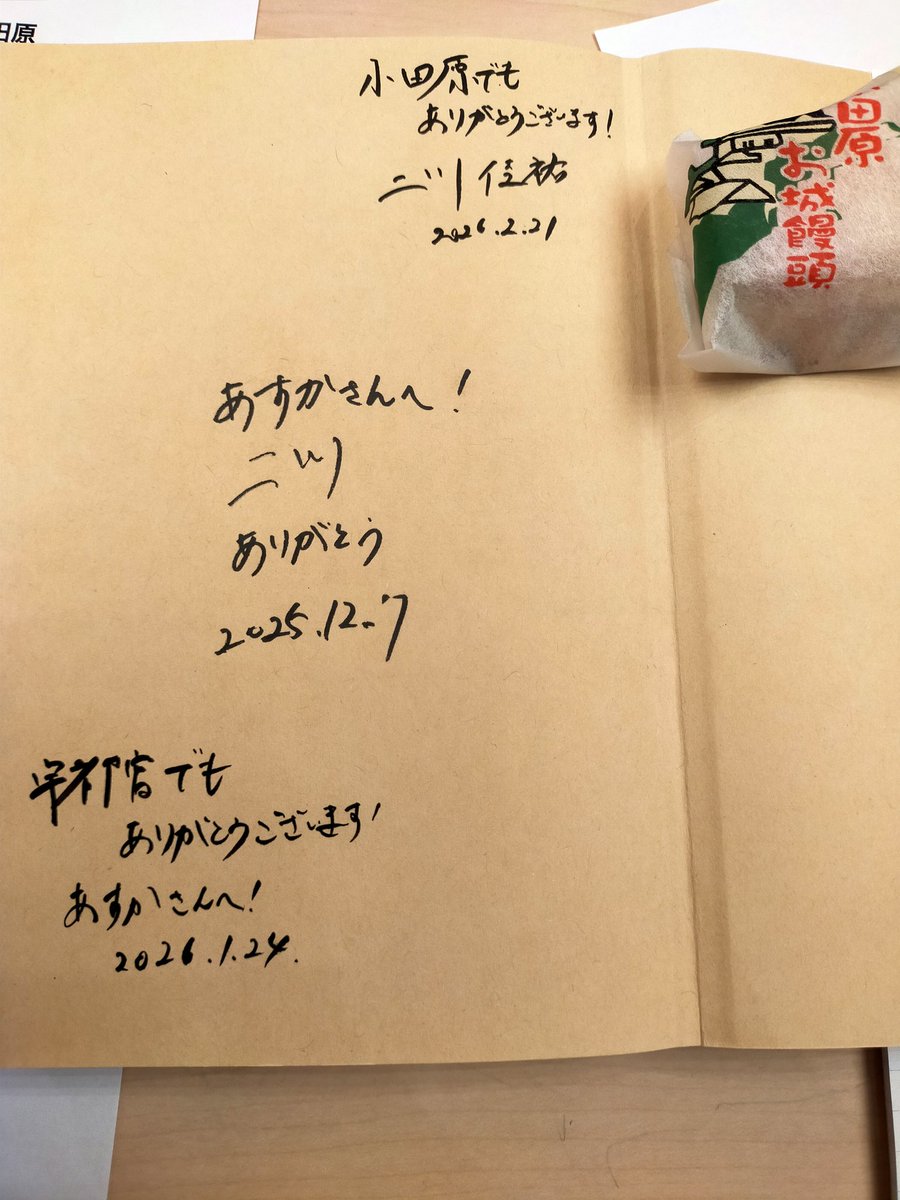 田原
小田原でも
ありがとうございます!
二川佳祐
2026.2.21
田原
お城饅頭
あすかさんへ!
二川
ありがとう
2025.12.7
宇都宮でも
ありがとうございます!
あすかさんへ!
2026.1.24.